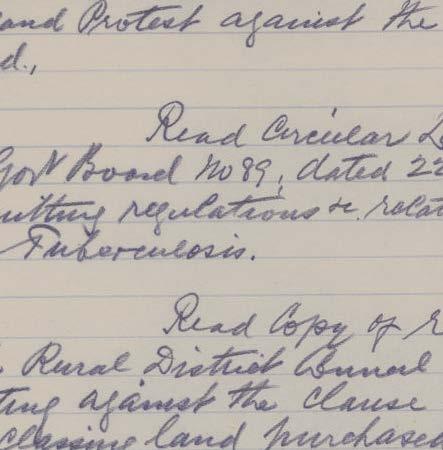 and Protest against the
d.,
Read Circular
Gov't Board No 89, dated 22
mitting regulations &c. relat
Tuberculosis.
Read Copy of
Rural District Council
ting against the clause
classing land purchased